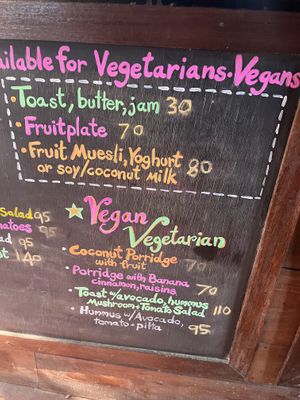 ailable for Vegetarians·Vegans
• Toast, butter, jam 30
• Fruitplate 70
• Fruit Muesli, Yoghurt 80
or soy/coconut milk
Salad 95
matoes 95
ad 95
st 140
★ Vegan
Vegetarian
• Coconut Porridge 70
with fruit
• Porridge with Banana 70
cinnamon, raisins
• Toast w/avocado, hummus 110
Mushroom + Tomato Salad
• Hummus w/Avocado, 95
tomato • pitta